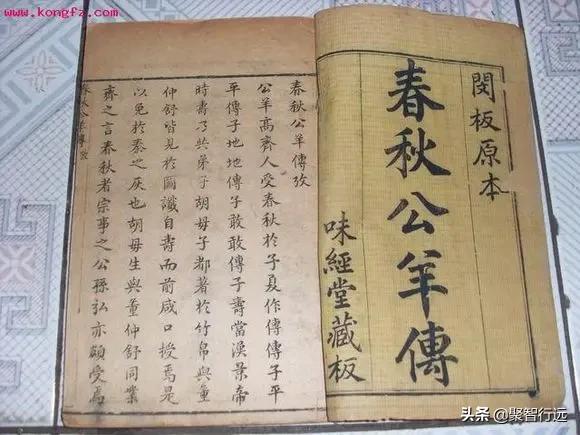 www.kongfz.com
閔板原本
春秋公羊傳
味經堂藏板
春秋公羊傳攷
公羊高齊人受春秋於子夏作傳傳子平
平傳子地地傳子敢敢傳子壽當漢景帝
時壽乃共弟子胡母子都著於竹帛與董
仲舒皆見於圖讖自壽而前咸口授焉是
以免於秦之灰也胡母生與董仲舒同業
齊之言春秋者宗事之公孫弘亦頗受焉
春秋公羊傳攷
头条 @聚智行远